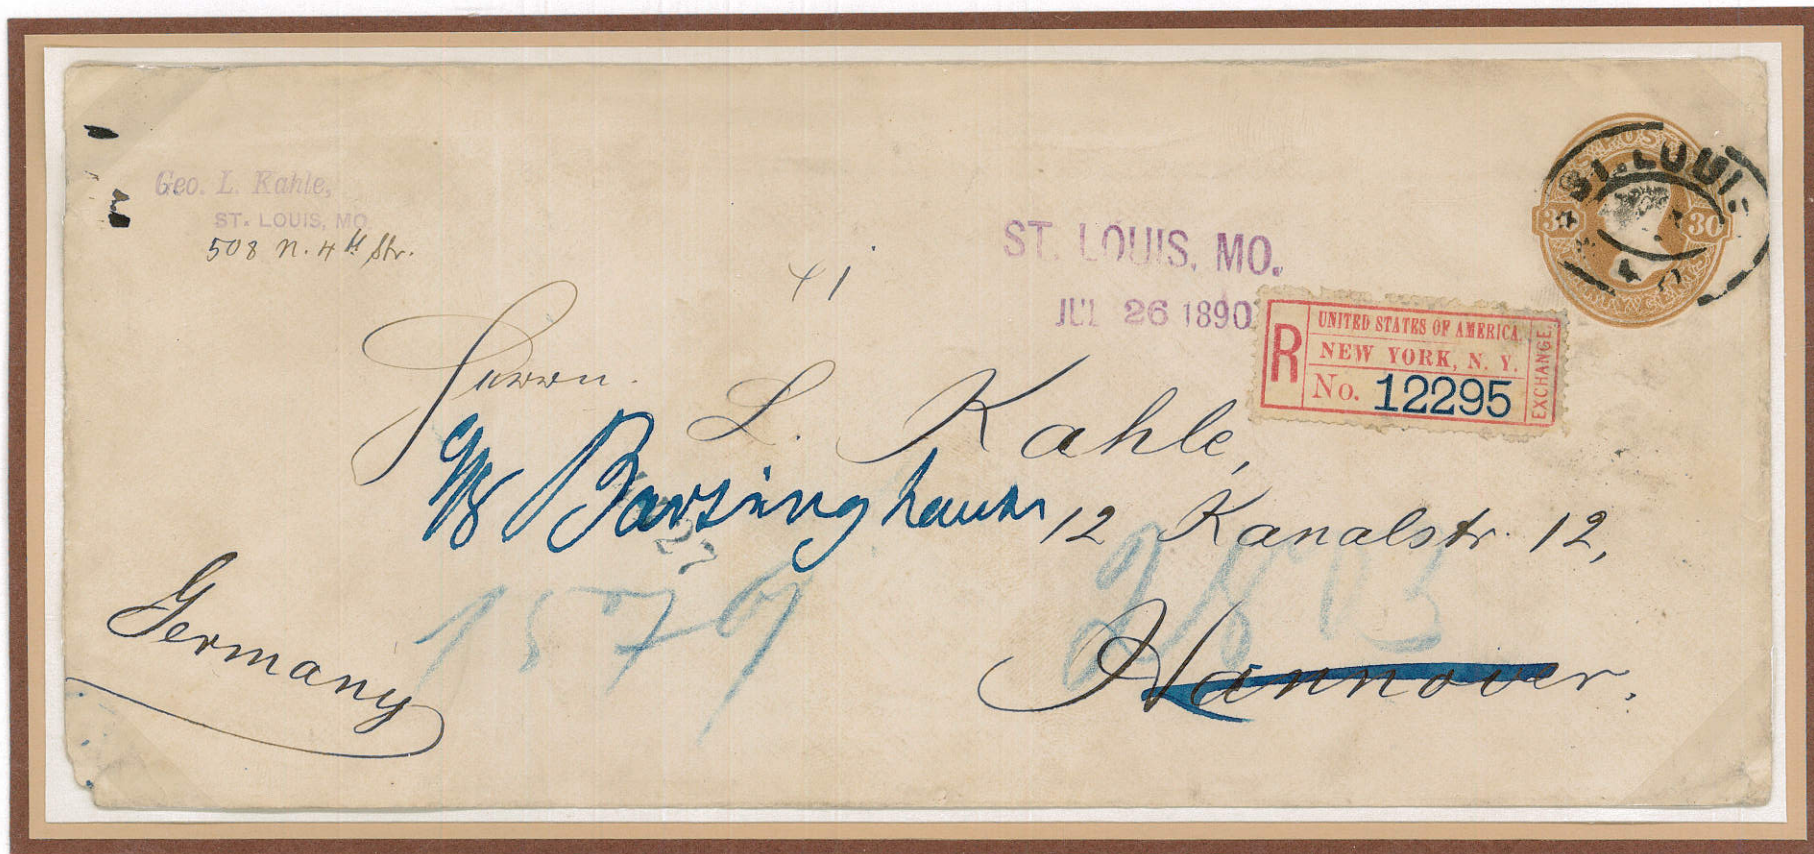 Geo. L. Kahle,
ST. LOUIS, MO
508 N. 4th Str.
ST. LOUIS
30
41
ST. LOUIS, MO.
JUL 26 1890
R
UNITED STATES OF AMERICA
NEW YORK, N. Y.
No. 12295
EXCHANGE
Herrn.
L. Kahle,
Barsinghausen
12 Kanalstr. 12,
1579
Hannover.
Germany